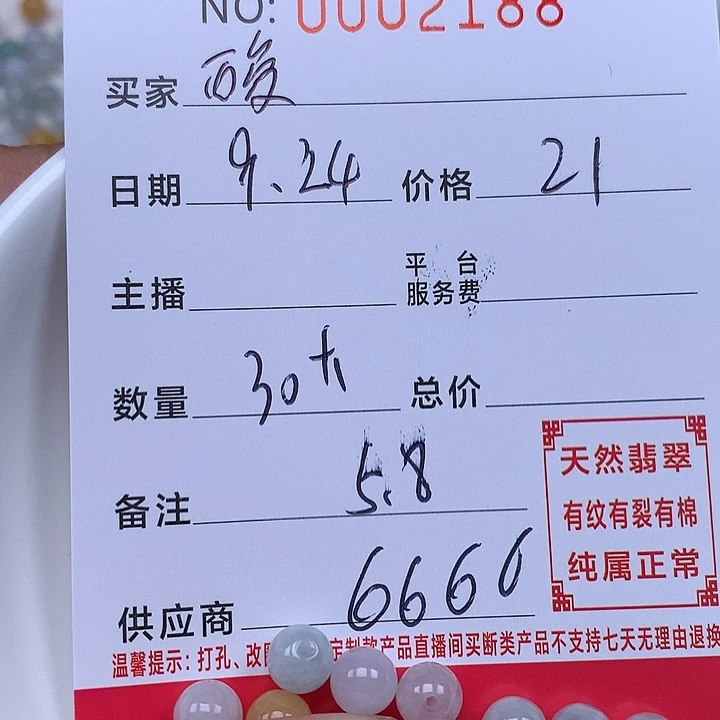 NO: 0002188
买家 酸
日期 9.24 价格 21
主播 平台服务费
数量 30 总价
备注 5.8
供应商 6666
天然翡翠
有纹有裂有棉
纯属正常
温馨提示：打孔、改 定制款产品直播间买断类产品不支持七天无理由退换